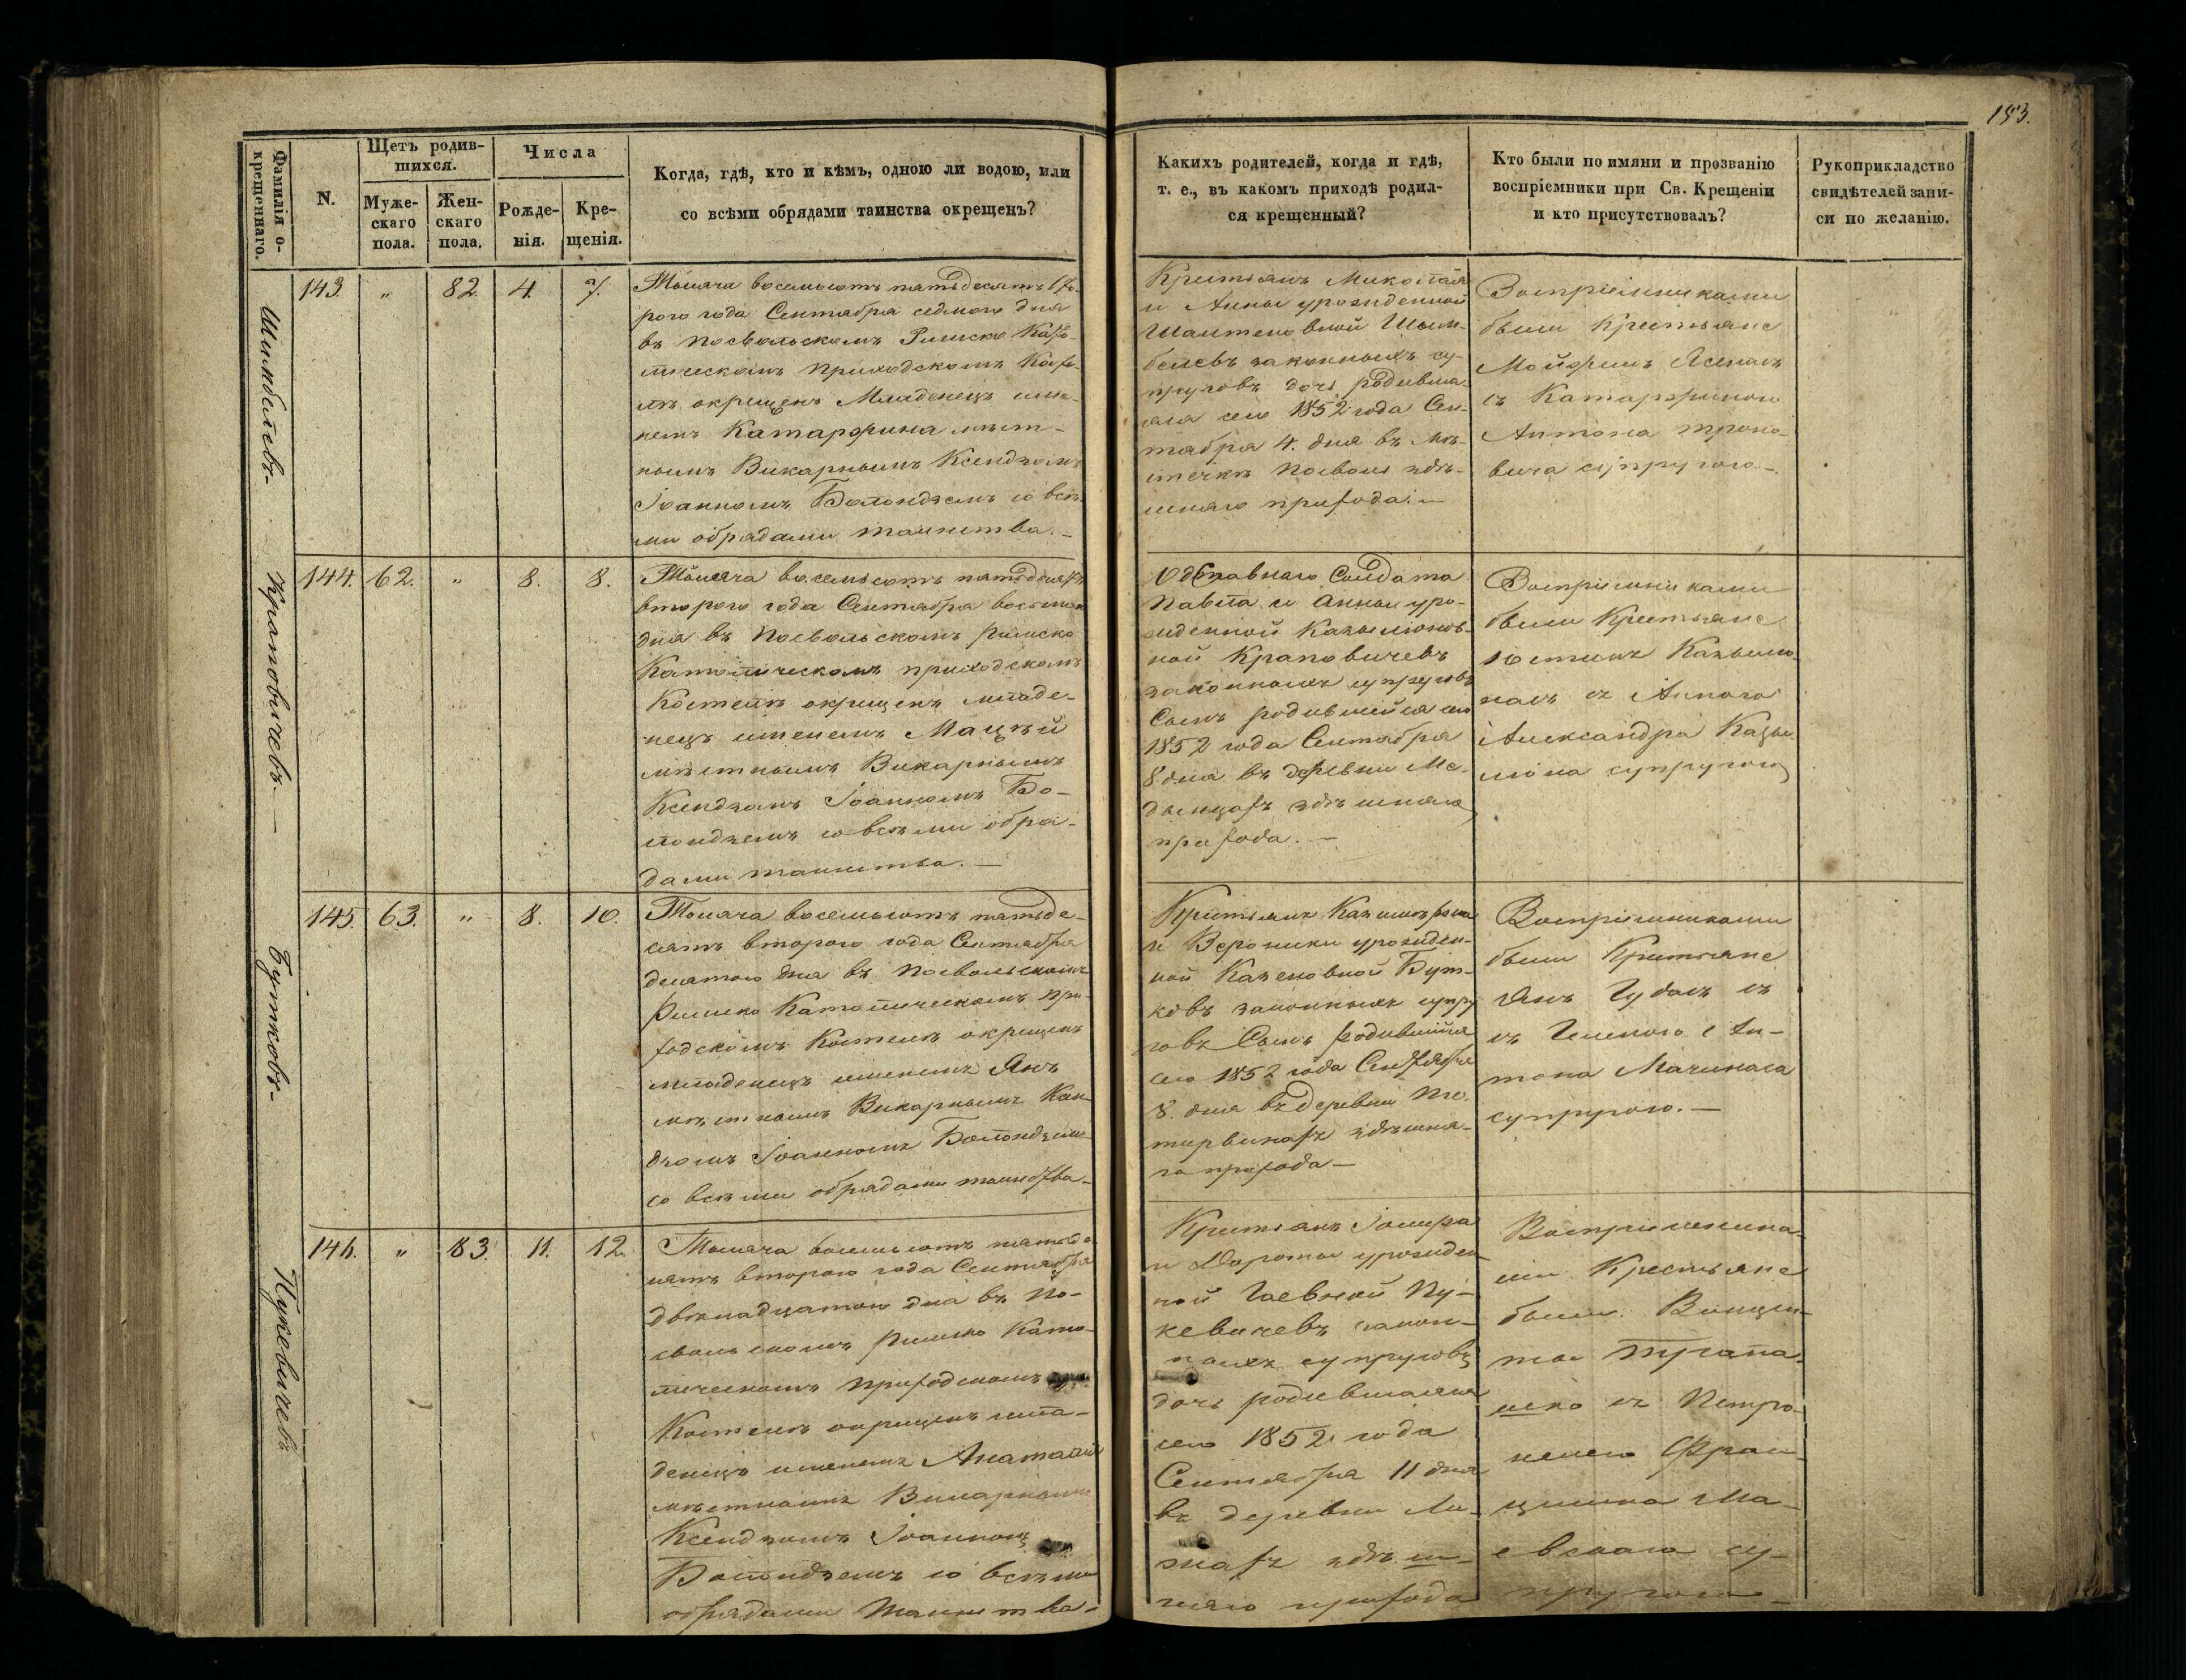 153.
Фамилія о-
крещеннаго.
N.
Щетъ родив-
шихся.
Муже-
скаго
пола.
Жен-
скаго
пола.
Числа
Рожде-
нія.
Кре-
щенія.
Когда, гдѣ, кто и кѣмъ, одною ли водою, или
со всѣми обрядами таинства окрещенъ?
Какихъ родителей, когда и гдѣ,
т. е., въ какомъ приходѣ родил-
ся крещенный?
Кто были по имяни и прозванію
воспріемники при Св. Крещеніи
и кто присутствовалъ?
Рукоприкладство
свидѣтелей запи-
си по желанію.
Шимбелевъ-
143. " 82. 4. 7.
Тысяча восемьсотъ пятьдесятъ вто-
рого года Сентября седмого дня
въ Посвольскомъ Римско Като-
лическомъ приходскомъ Косте-
лѣ окрещенъ Младенецъ име-
немъ Катаржина мѣст-
нымъ Викарнымъ Ксендзомъ
Іоанномъ Болондземъ со всѣ-
ми обрядами таинства.-
Крестьянъ Миколая
и Анны урожденной
Шимбелевъ законныхъ су-
пруговъ дочь родивша-
яся сего 1852 года Сен-
тября 4. дня въ мѣ-
стечкѣ Посволѣ здѣ-
шняго прихода.-
Воспріемниками
были Крестьяне
съ Катаржиною
Антона
супругою.-
Краповичевъ.-
144. 62. " 8. 8.
Тысяча восемьсотъ пятьдесятъ
второго года Сентября восьмого
дня въ Посвольскомъ Римско
Католическомъ приходскомъ
Костелѣ окрещенъ младе-
нецъ именемъ Мацѣй
мѣстнымъ Викарнымъ
Ксендзомъ Іоанномъ Бо-
лондземъ со всѣми обря-
дами таинства.-
Отставнаго Солдата
Павла и Анны уро-
жденной Казылионов-
ной Краповичевъ
законныхъ супруговъ
Сынъ родившійся сего
1852 года Сентября
8 дня въ деревни
здѣшняго
прихода.-
Воспріемниками
были Крестьяне
съ Анною
Александра
супругою
Бутковъ-
145. 63. " 8. 10.
Тысяча восемьсотъ пятьде-
сятъ второго года Сентября
десятого дня въ Посвольскомъ
Римско Католическомъ при-
ходскомъ Костелѣ окрещенъ
младенецъ именемъ Янъ
мѣстнымъ Викарнымъ Ксен-
дзомъ Іоанномъ Болондземъ
со всѣми обрядами таинства-
Крестьянъ Казимѣржа
и Вероники урожден-
ной Казеновной Бут-
ковъ законныхъ супру-
говъ Сынъ родившійся
сего 1852 года Сентября
8. дня въ деревни
здѣшня-
го прихода-
Воспріемниками
были Крестьяне
Янъ Гудасъ съ
Ан-
тона Мачинаса
супругою.-
Пукевичевъ
146. " 83. 11. 12.
Тысяча восемьсотъ пятьде-
сятъ второго года Сентября
двѣнадцатого дня въ По-
свольскомъ Римско Като-
лическомъ приходскомъ
Костелѣ окрещенъ мла-
денецъ именемъ Анаталія
мѣстнымъ Викарнымъ
Ксендзомъ Іоанномъ
Болондземъ со всѣми
обрядами таинства-
Крестьянъ
и Дороты урожден-
ной Гаевской Пу-
кевичевъ закон-
ныхъ супруговъ
дочь родившаяся
сего 1852 года
Сентября 11 дня
въ деревни
здѣш-
няго прихода
Воспріемника-
ми Крестьяне
были Винцен-
съ Петро-
нелею Фран-
цишка Ма-
евскаго су-
пругою-